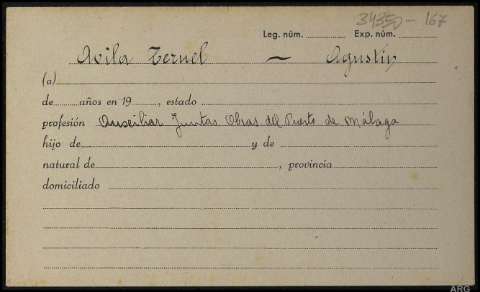 34350-167
Leg. núm. Exp. núm.
Avila Teruel — Agustín
(a)
de años en 19 , estado
profesión Auxiliar Juntas Obras del Puerto de Málaga
hijo de y de
natural de , provincia
domiciliado
ARG